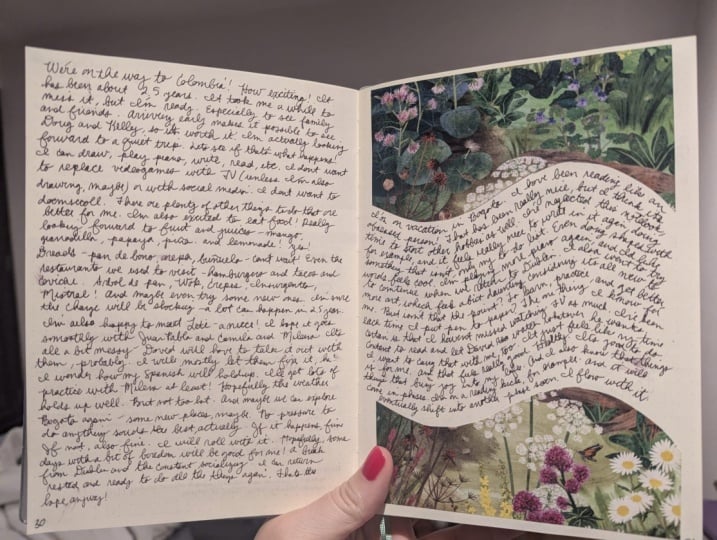 We're on the way to Colombia!! How exciting! It
has been about 2.5 years. It took me a while to
miss it, but I'm ready. Especially to see family
and friends. Arriving early makes it possible to see
Doug and Kelly, so it's worth it. I'm actually looking
forward to a quiet trip. Let's see if that's what happens!
I can draw, play piano, write, read, etc. I don't want
to replace videogames with TV (unless I'm also
drawing, maybe) or with social media. I don't want to
doomscroll. There are plenty of other things to do that are
better for me. I'm also excited to eat food! Really
looking forward to fruit and juices - mango,
granadilla, papaya, juice and lemonade! Yes!
Breads - pan de bono, arepa, buñuelo - can't wait. Even the
restaurants we used to visit - hamburgers and tacos and
ceviche. Arbol de pan, Wok, Crepes, Insurgentes,
Mistral! And maybe even try some new ones. I'm sure
the change will be shocking - a lot can happen in 2.5 years.
I'm also happy to meet - a niece! I hope it goes
smoothly with and Camila and Milena. It's
all a bit messy. David will have to talk it out with
them, probably. I will mostly let them fix it, he!
I wonder how my Spanish will hold up. I'll get lots of
practice with Milena at least! Hopefully the weather
holds up well. Not too hot. And maybe we can explore
Bogota again - some new places, maybe. No pressure to
do anything sounds the best actually. If it happens, fine.
If not, also fine. I will roll with it. Hopefully, some
days with a bit of boredom will be good for me! A break
from Dublin and the constant socializing. I can return
rested and ready to do all the things again. That's the
hope, anyway!
30
I'm on vacation in Bogota. I have been reading like an
obsessed person! That has been really nice, but I think it's
time to start other hobbies as well. I've neglected this notebook,
for example, and it feels really nice to write in it again doing
something that isn't only my to do list. Even doing shapes with
words feels cool. I'm playing more piano again and I'd like
to continue when we return to Dublin. I also want to try
more art, which feels a bit daunting considering it's all new to
me. But isn't that the point? To learn, practice, and get better
each time I put pen to paper. The only thing I know for
certain is that I haven't missed watching TV as much. I've been
content to read and let David watch whatever he wants.
I want to carry that with me, too. It just feels like my time
is for me, and that feels really good. Healthy. It's going to do
things that bring joy into my life. And I also know that things
come in phases. I'm on a reading kick, for example, and it will
eventually shift into another phase soon. I flow with it.